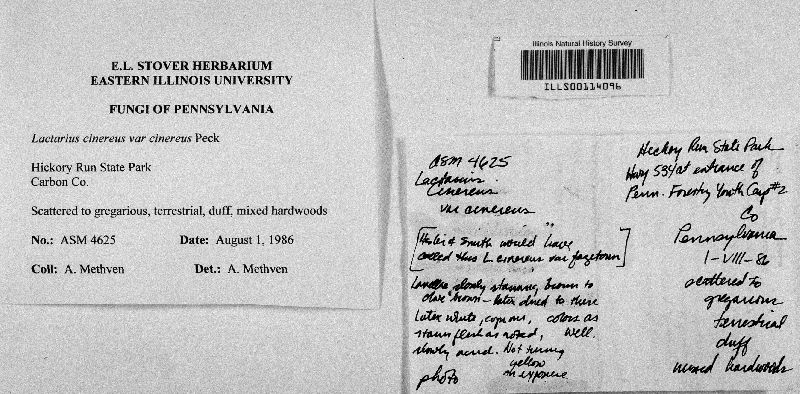 E.L. STOVER HERBARIUM
EASTERN ILLINOIS UNIVERSITY
FUNGI OF PENNSYLVANIA
Lactarius cinereus var cinereus Peck
Hickory Run State Park
Carbon Co.
Scattered to gregarious, terrestrial, duff, mixed hardwoods
No.: ASM 4625 Date: August 1, 1986
Coll: A. Methven Det.: A. Methven
Illinois Natural History Survey
ILLS00114096
ASM 4625
Lactarius
cinereus
var cinereus
& Smith would have
called this L. cinereus var fagetorum
Lamellae slowly staining brown to
olive brown - later dried to these
Latex white, copious, colors as
stains flesh as noted, well.
slowly acrid. Not turning
yellow
on exposure.
photo
Hickory Run State Park
Hwy 534 at entrance of
Penn. Forestry Youth Camp #2
Co
Pennsylvania
1-VIII-86
scattered to
gregarious
terrestrial
duff
mixed hardwoods